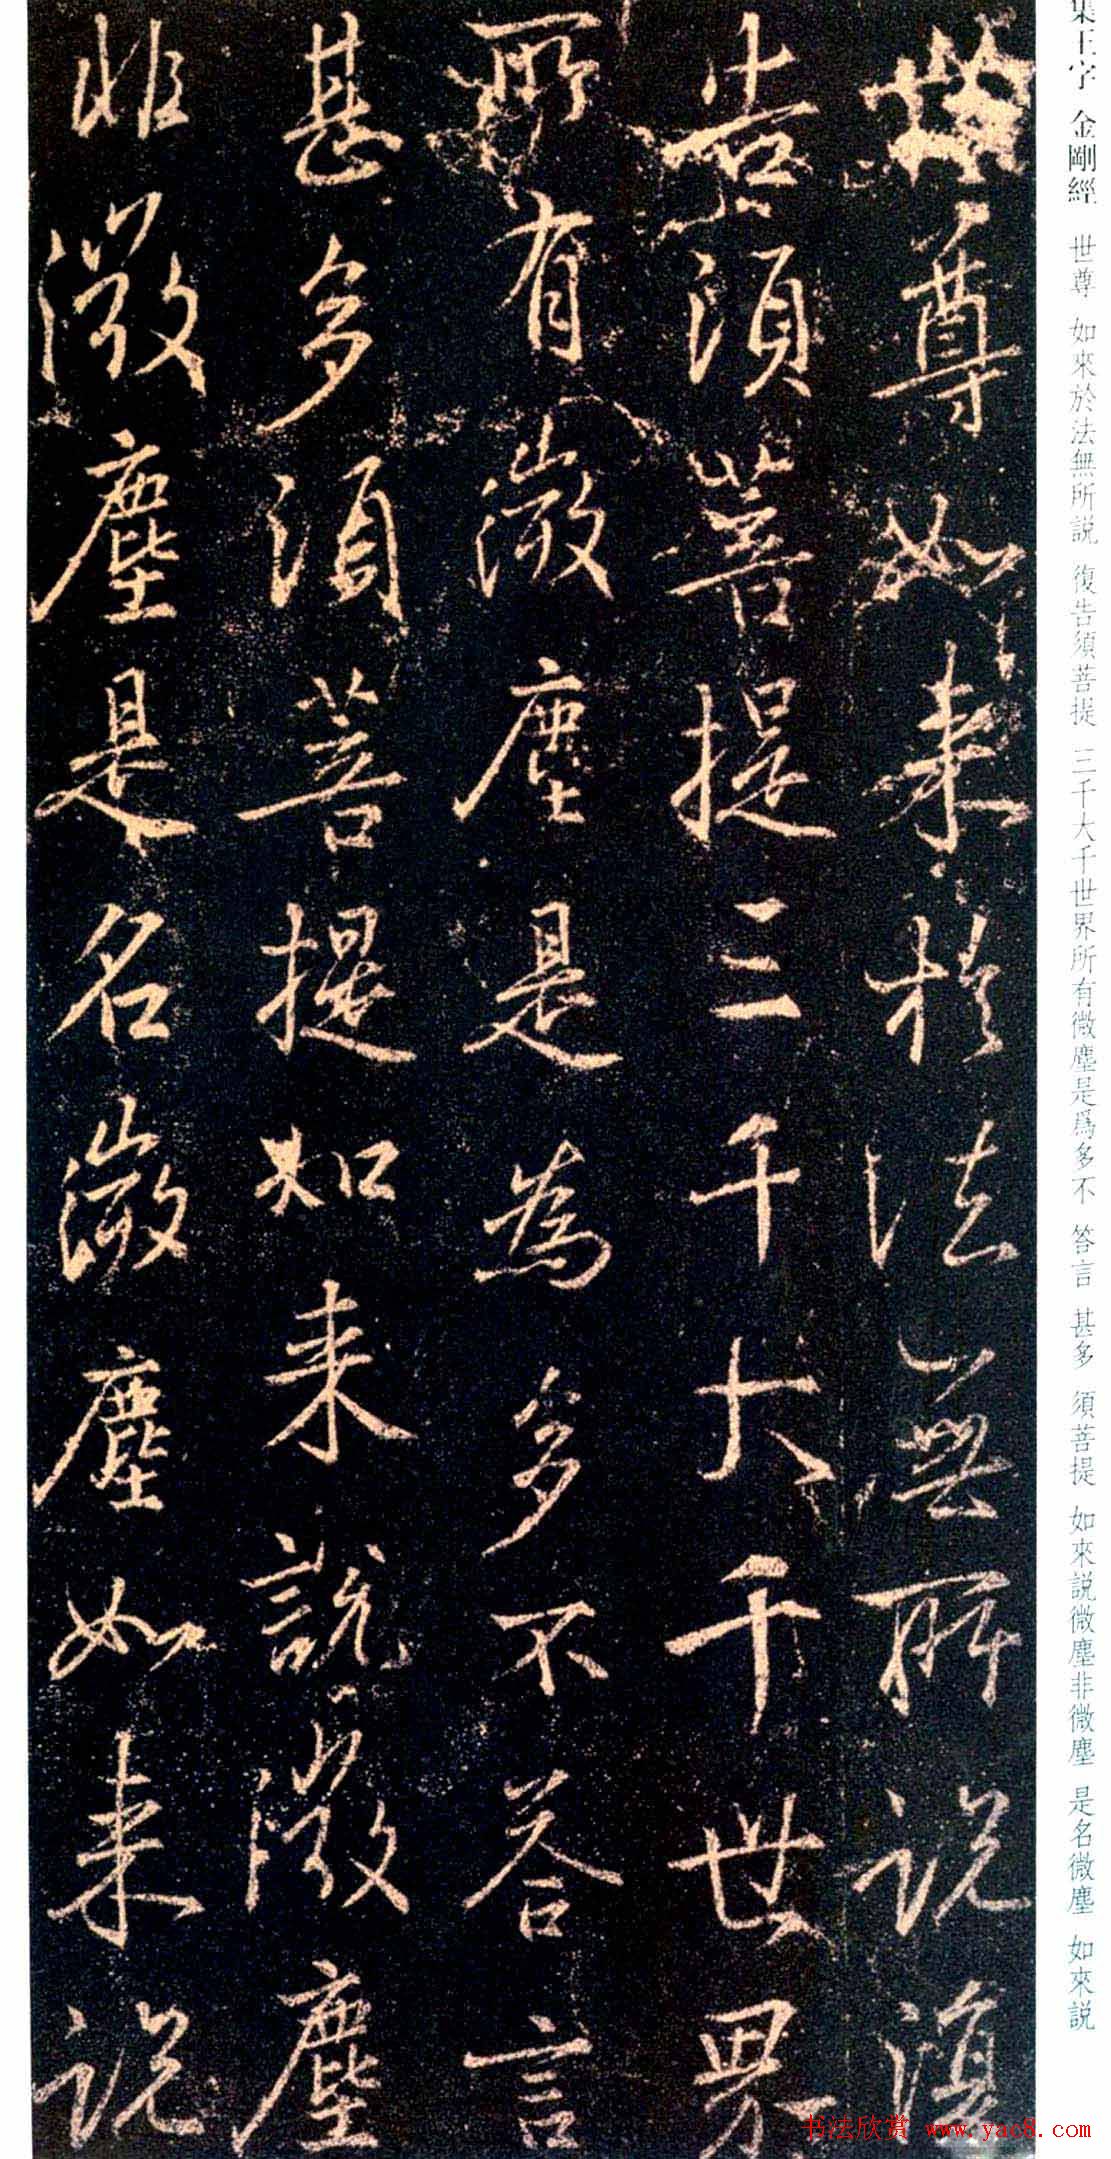 集王字 金剛經 世尊 如來於法無所説 復告須菩提 三千大千世界所有微塵是爲多不 答言 甚多 須菩提 如來説微塵非微塵 是名微塵 如來説
世尊如来於法無所說復
告須菩提三千大千世界
所有微塵是為多不答言
甚多須菩提如来說微塵
非微塵是名微塵如来說
书法欣赏 www.yac8.com